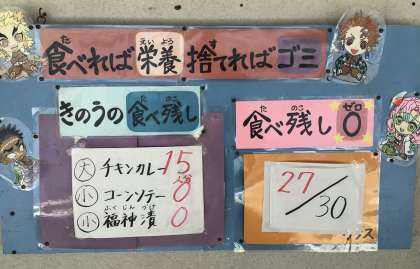 食べれば栄養 捨てればゴミ
きのうの食べ残し
大 チキンカレー 15人分
小 コーンソテー 8
小 福神漬 0
食べ残し0
27/30